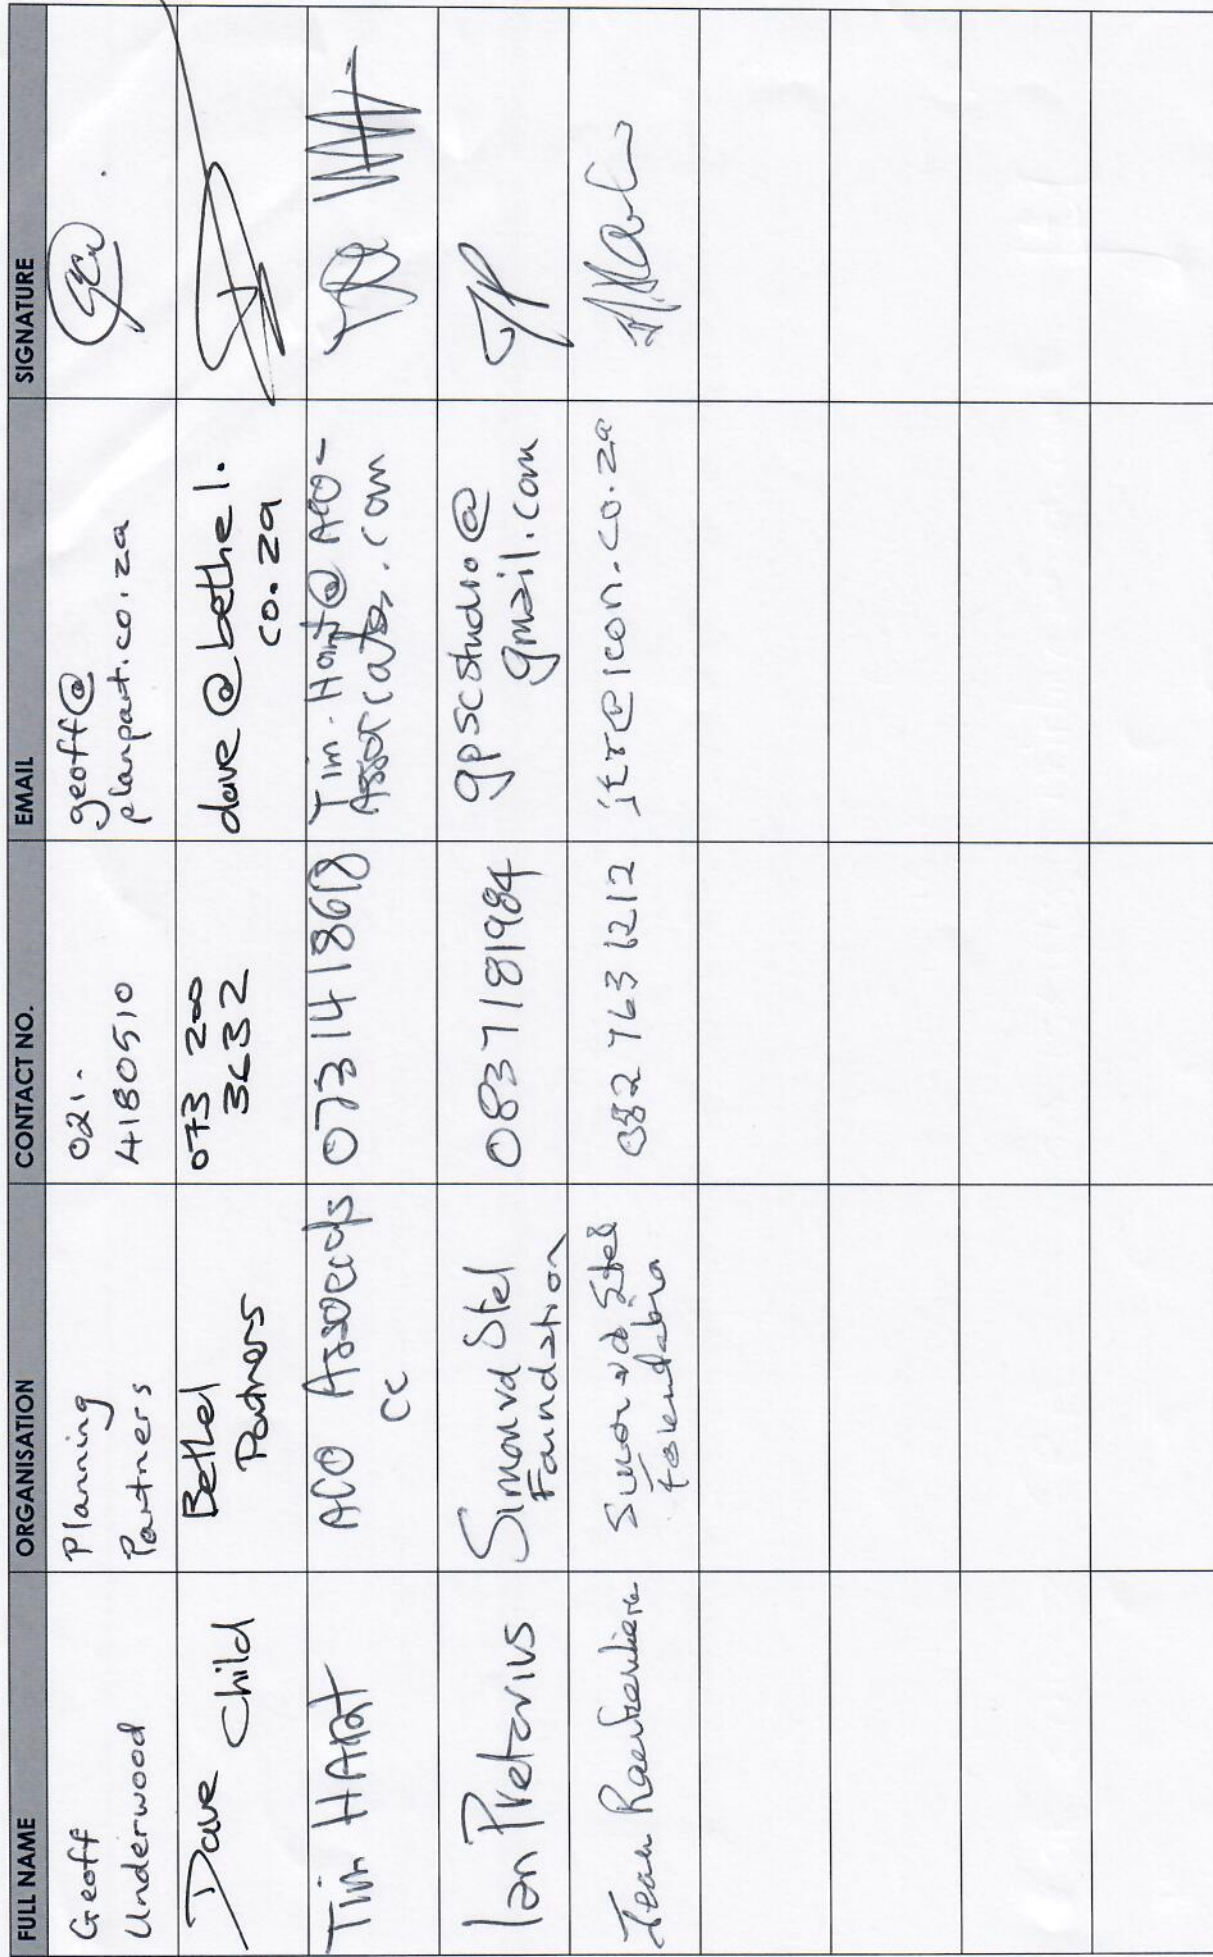 FULL NAME
ORGANISATION
CONTACT NO.
EMAIL
SIGNATURE
Geoff
Underwood
Planning
Partners
021.
4180510
geoff@
planpart.co.za
Dave Child
Bethel
Partners
073 200
3632
dave@bethel.
co.za
Tim HART
ACO Associates
CC
0731418618
Tim.Hart@ACO-
Associates.com
Ian Pretorius
Simon vd Stel
Foundation
0837181984
gpscstudio@
gmail.com
Jean
Simon vd Stel
082 763 1212